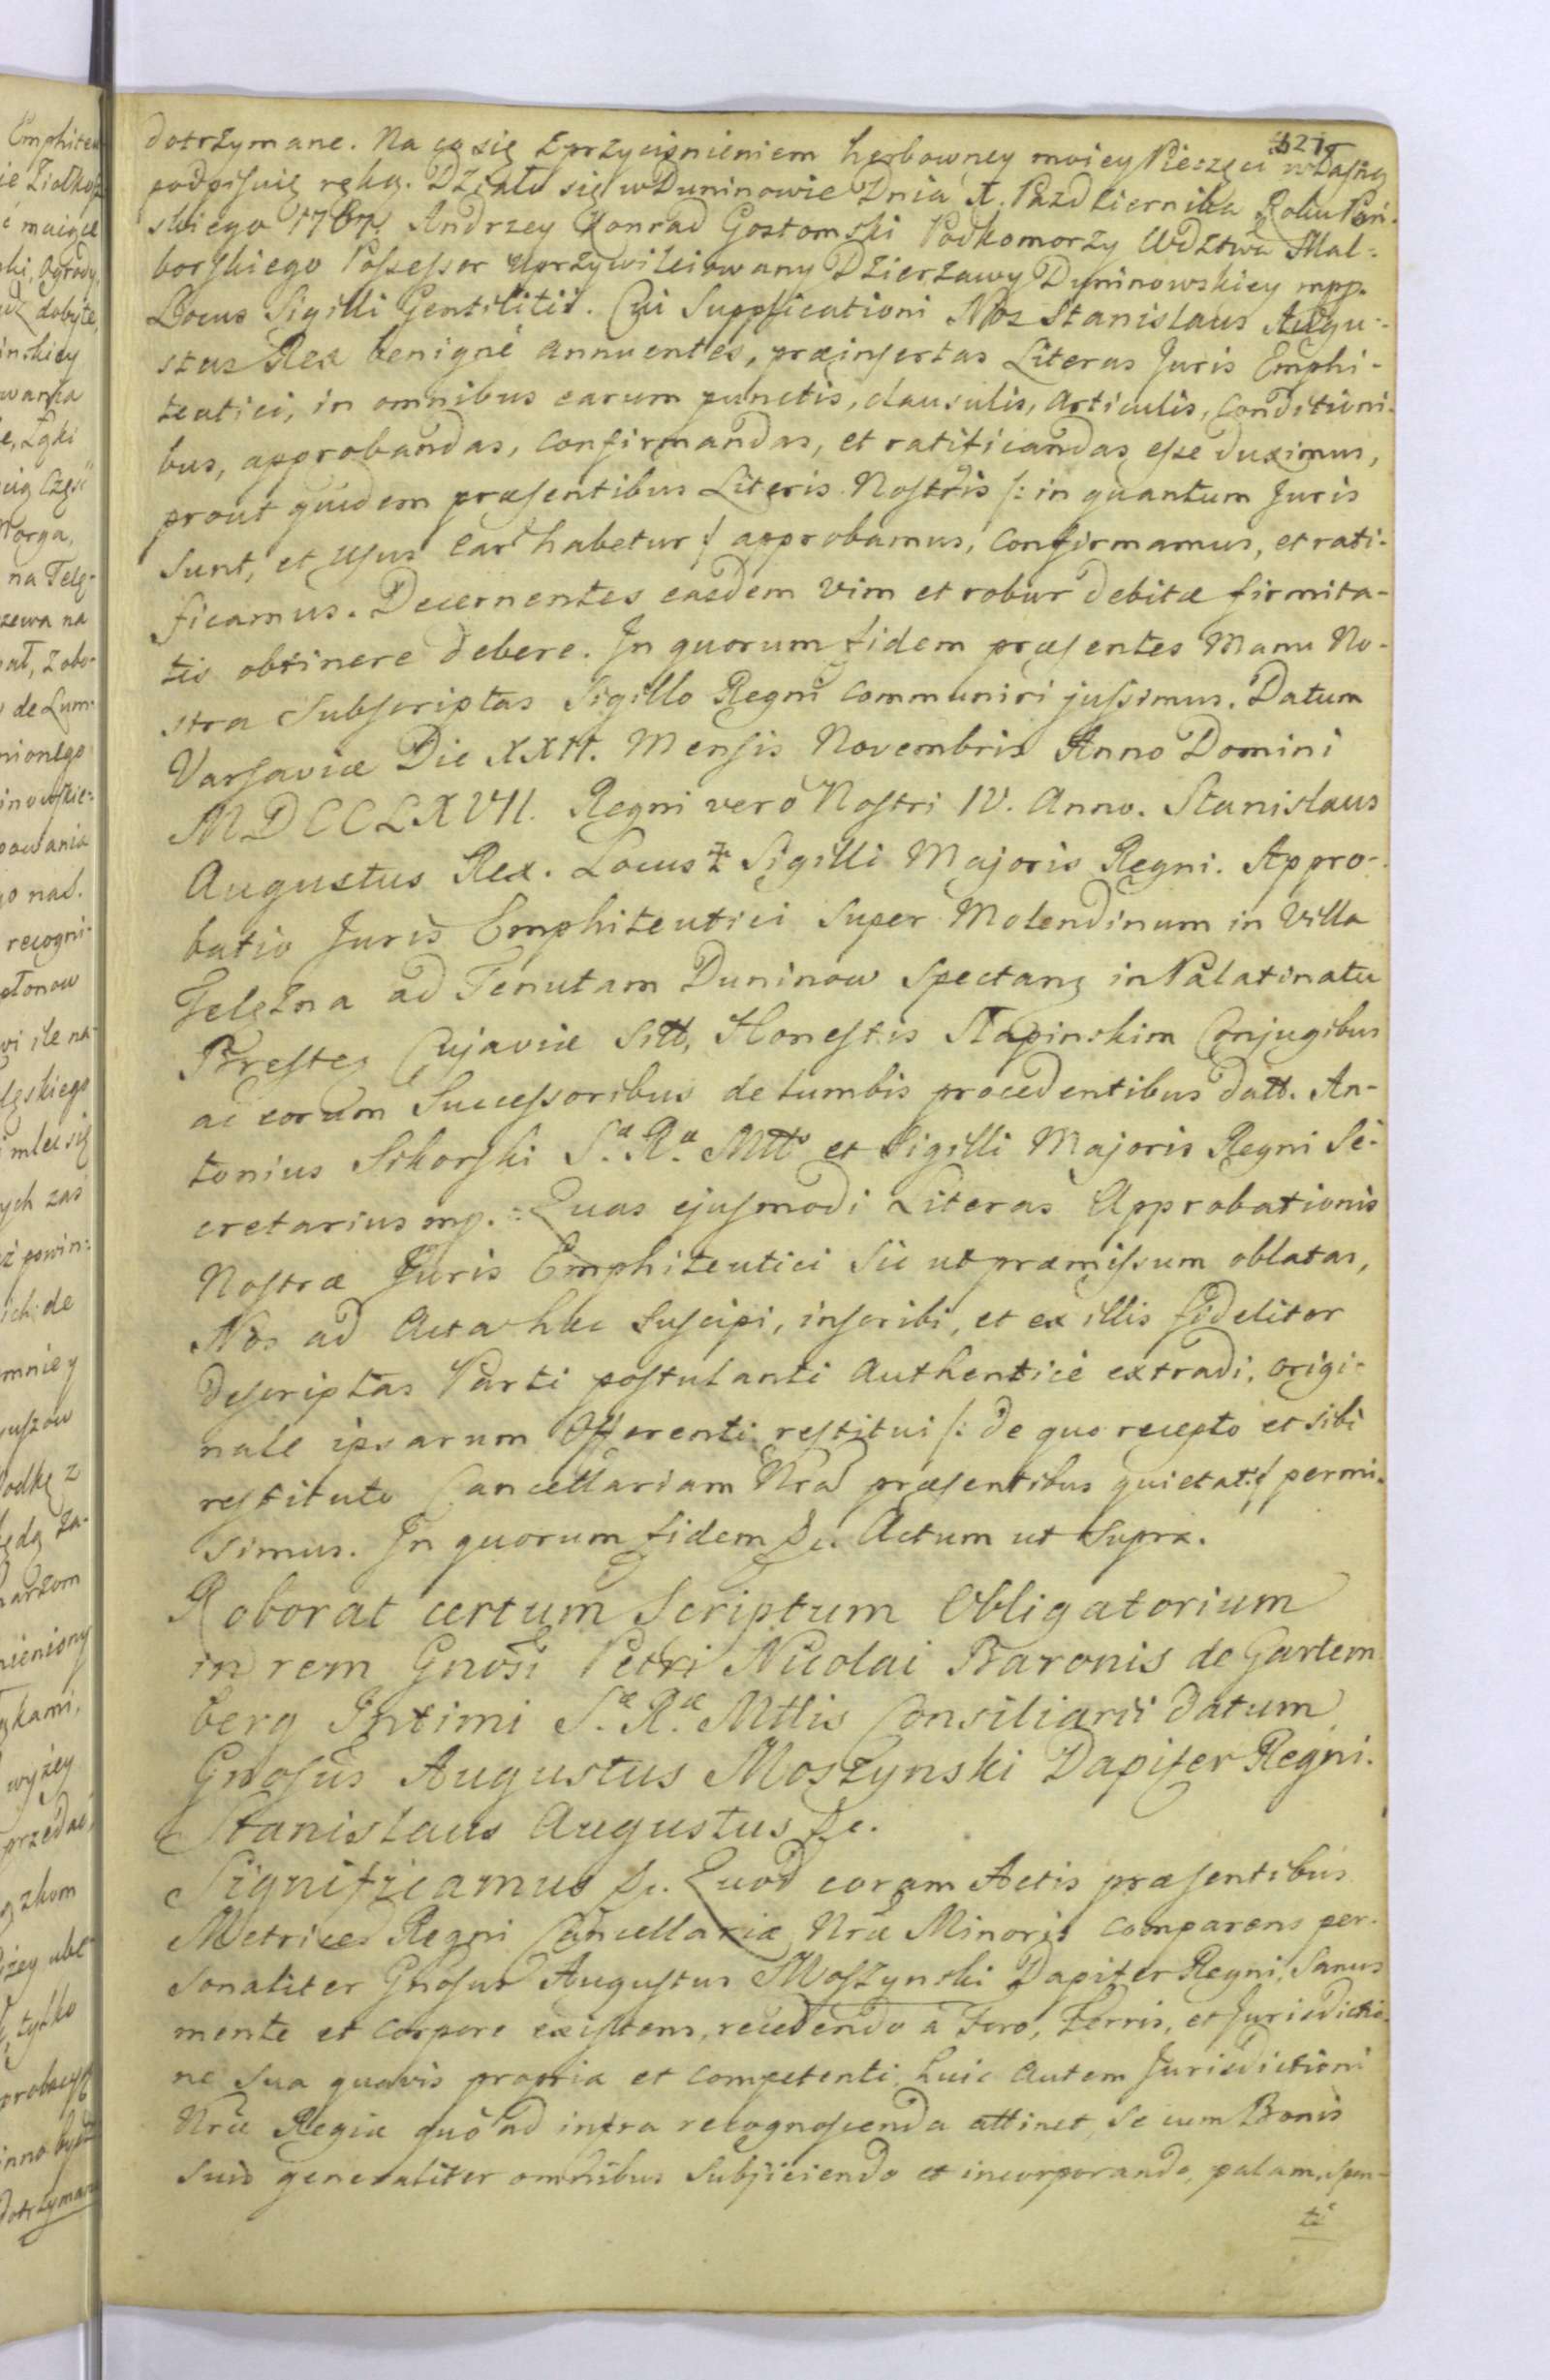 dotrzymane. Na co się z przyciśnieniem herbowney moiey Pieczęci własną
podpisuię ręką. Działo się w Duninowie Dnia Październikа Roku Pań-
skiego 1767. Andrzey Konrad Gostomski Podkomorzy Wdztwa Mal-
borskiego Possessor uprzywileiowany Dzierżawy Duninowskiey mpp.
Locus Sigilli Gentilitii. Cui Supplicationi Nos Stanislaus Augu-
stus Rex benigné annuentes, præinsertas Literas Juris Emphi-
teutici, in omnibus earum punctis, clausulis, articulis, Conditioni-
bus, approbandas, Confirmandas, et ratificandas esse duximus,
prout quidem præsentibus Literis Nostris /: in quantum Juris
sunt, et Usus ear habetur :/ approbamus, Confirmamus, et rati-
ficamus. Decernentes easdem vim et robur debitæ firmita-
tis obtinere debere. In quorum fidem præsentes Manu No-
stra Subscriptas Sigillo Regni Communiri jussimus. Datum
Varsaviæ Die Mensis Novembris Anno Domini
MDCCLXVII. Regni vero Nostri IV. Anno. Stanislaus
Augustus Rex. Locus Sigilli Majoris Regni. Appro-
batio Juris Emphiteutici super Molendinum in Villa
Telężna ad Tenutam Duninow Spectans in Palatinatu
Bresten Cujaviæ Sitt, Honestis Conjugibus
ac eorum Successoribus de lumbis procedentibus datt. An-
tonius Sikorski S.æ R.æ Mttis et Sigilli Majoris Regni Se-
cretarius mp. Quas ejusmodi Literas Approbationis
Nostræ Juris Emphiteutici sic ut præmissum oblatas,
Nos ad Acta hæc Suscipi, inscribi, et ex illis fideliter
Descriptas Parti postulanti Authenticè extradi, origi-
nale ipsarum Offerenti restitui /: de quo recepto et sibi
restituto Cancellariam Nrā præsentibus quietat :/ permi-
simus. In quorum fidem &c. Actum ut Supra.
Roborat certum Scriptum Obligatorium
in rem Gnosi Petri Nicolai Baronis de Gartem
berg Intimi S.æ R.æ Mttis Consiliarii datum
Gnosus Augustus Moszynski Dapifer Regni.
Stanislaus Augustus &c.
Significamus &c. Quod coram Actis præsentibus
Metrices Regni Cancellariæ Nræ Minoris comparens per-
sonaliter Gnosus Augustus Moszynski Dapifer Regni, Sanus
mente et corpore existens, recedendo a Foro, Terris, et Jurisdictio-
ne sua quavis propria et competenti, huic autem Jurisdictioni
Nræ Regiæ quo ad infra recognoscenda attinet, se cum Bonis
suis generaliter omnibus Subjiciendo et incorporando, palam, spon-
te